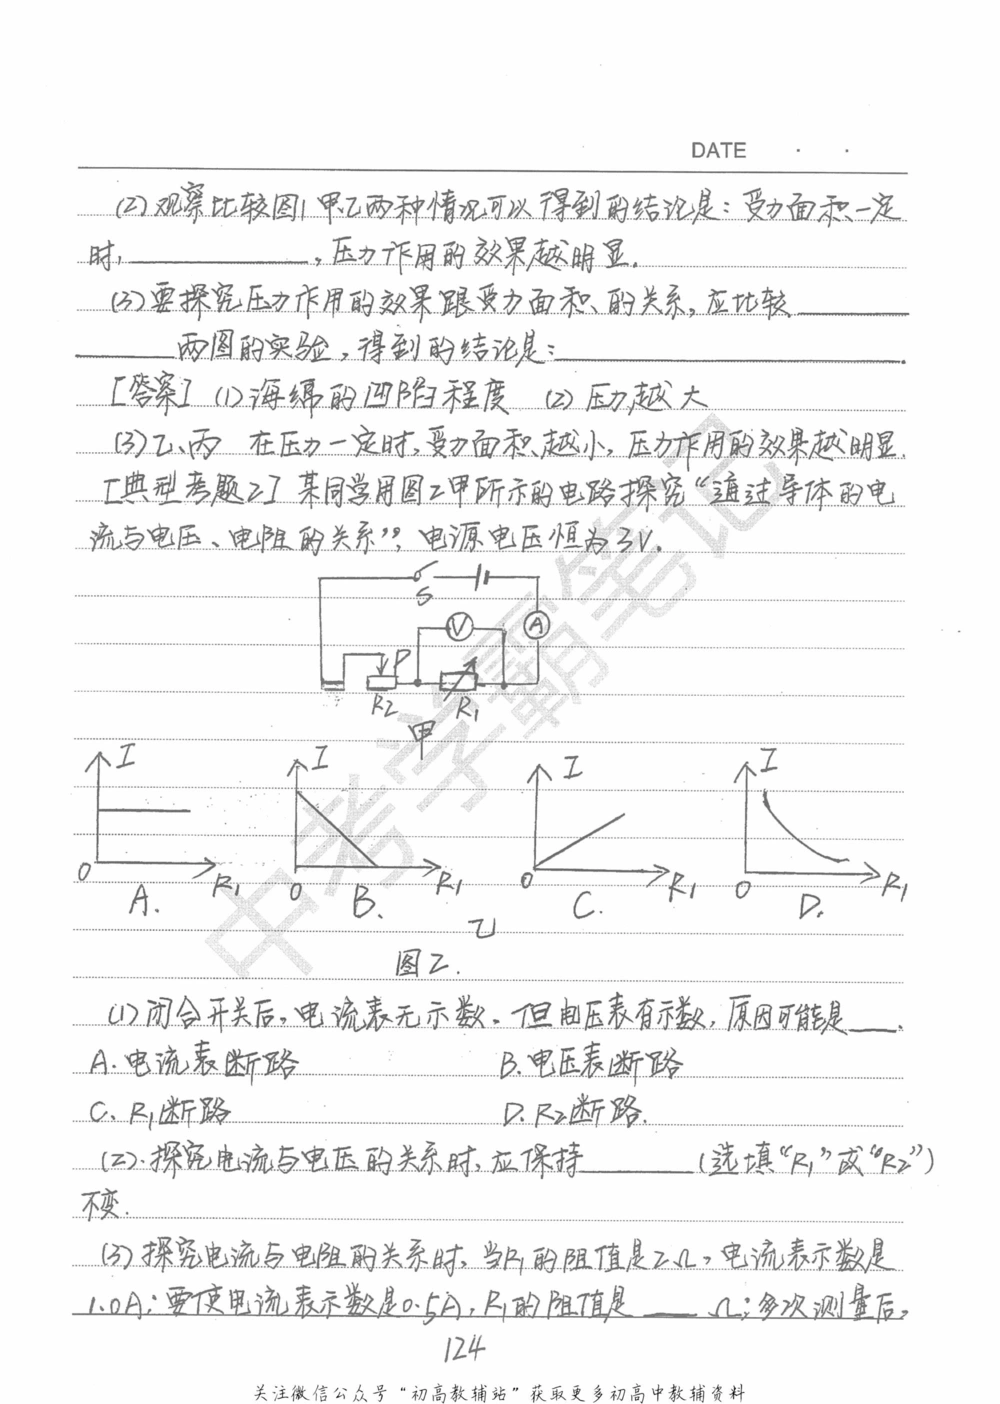 DATE · ·
(2)观察比较图1甲、乙两种情况可以得到的结论是：受力面积一定
时，__________，压力作用的效果越明显.
(3)要探究压力作用的效果跟受力面积的关系，应比较______
______两图的实验，得到的结论是：____________________.
[答案] (1)海绵的凹陷程度 (2)压力越大
(3)乙、丙 在压力一定时，受力面积越小，压力作用的效果越明显.
[典型考题2] 某同学用图2甲所示的电路探究“通过导体的电
流与电压、电阻的关系”，电源电压恒为3V.
S
V A
P
R2 R1
甲
I I I I
0 R1 0 R1 0 R1 0 R1
A. B. C. D.
乙
图2.
(1)闭合开关后，电流表无示数，但电压表有示数，原因可能是____.
A.电流表断路 B.电压表断路
C.R1断路 D.R2断路.
(2)探究电流与电压的关系时，应保持________(选填“R1”或“R2”)
不变.
(3)探究电流与电阻的关系时，当R1的阻值是2Ω，电流表示数是
1.0A；要使电流表示数是0.5A，R1的阻值是____Ω；多次测量后，
124
关注微信公众号“初高教辅站”获取更多初高中教辅资料
中考学霸笔记